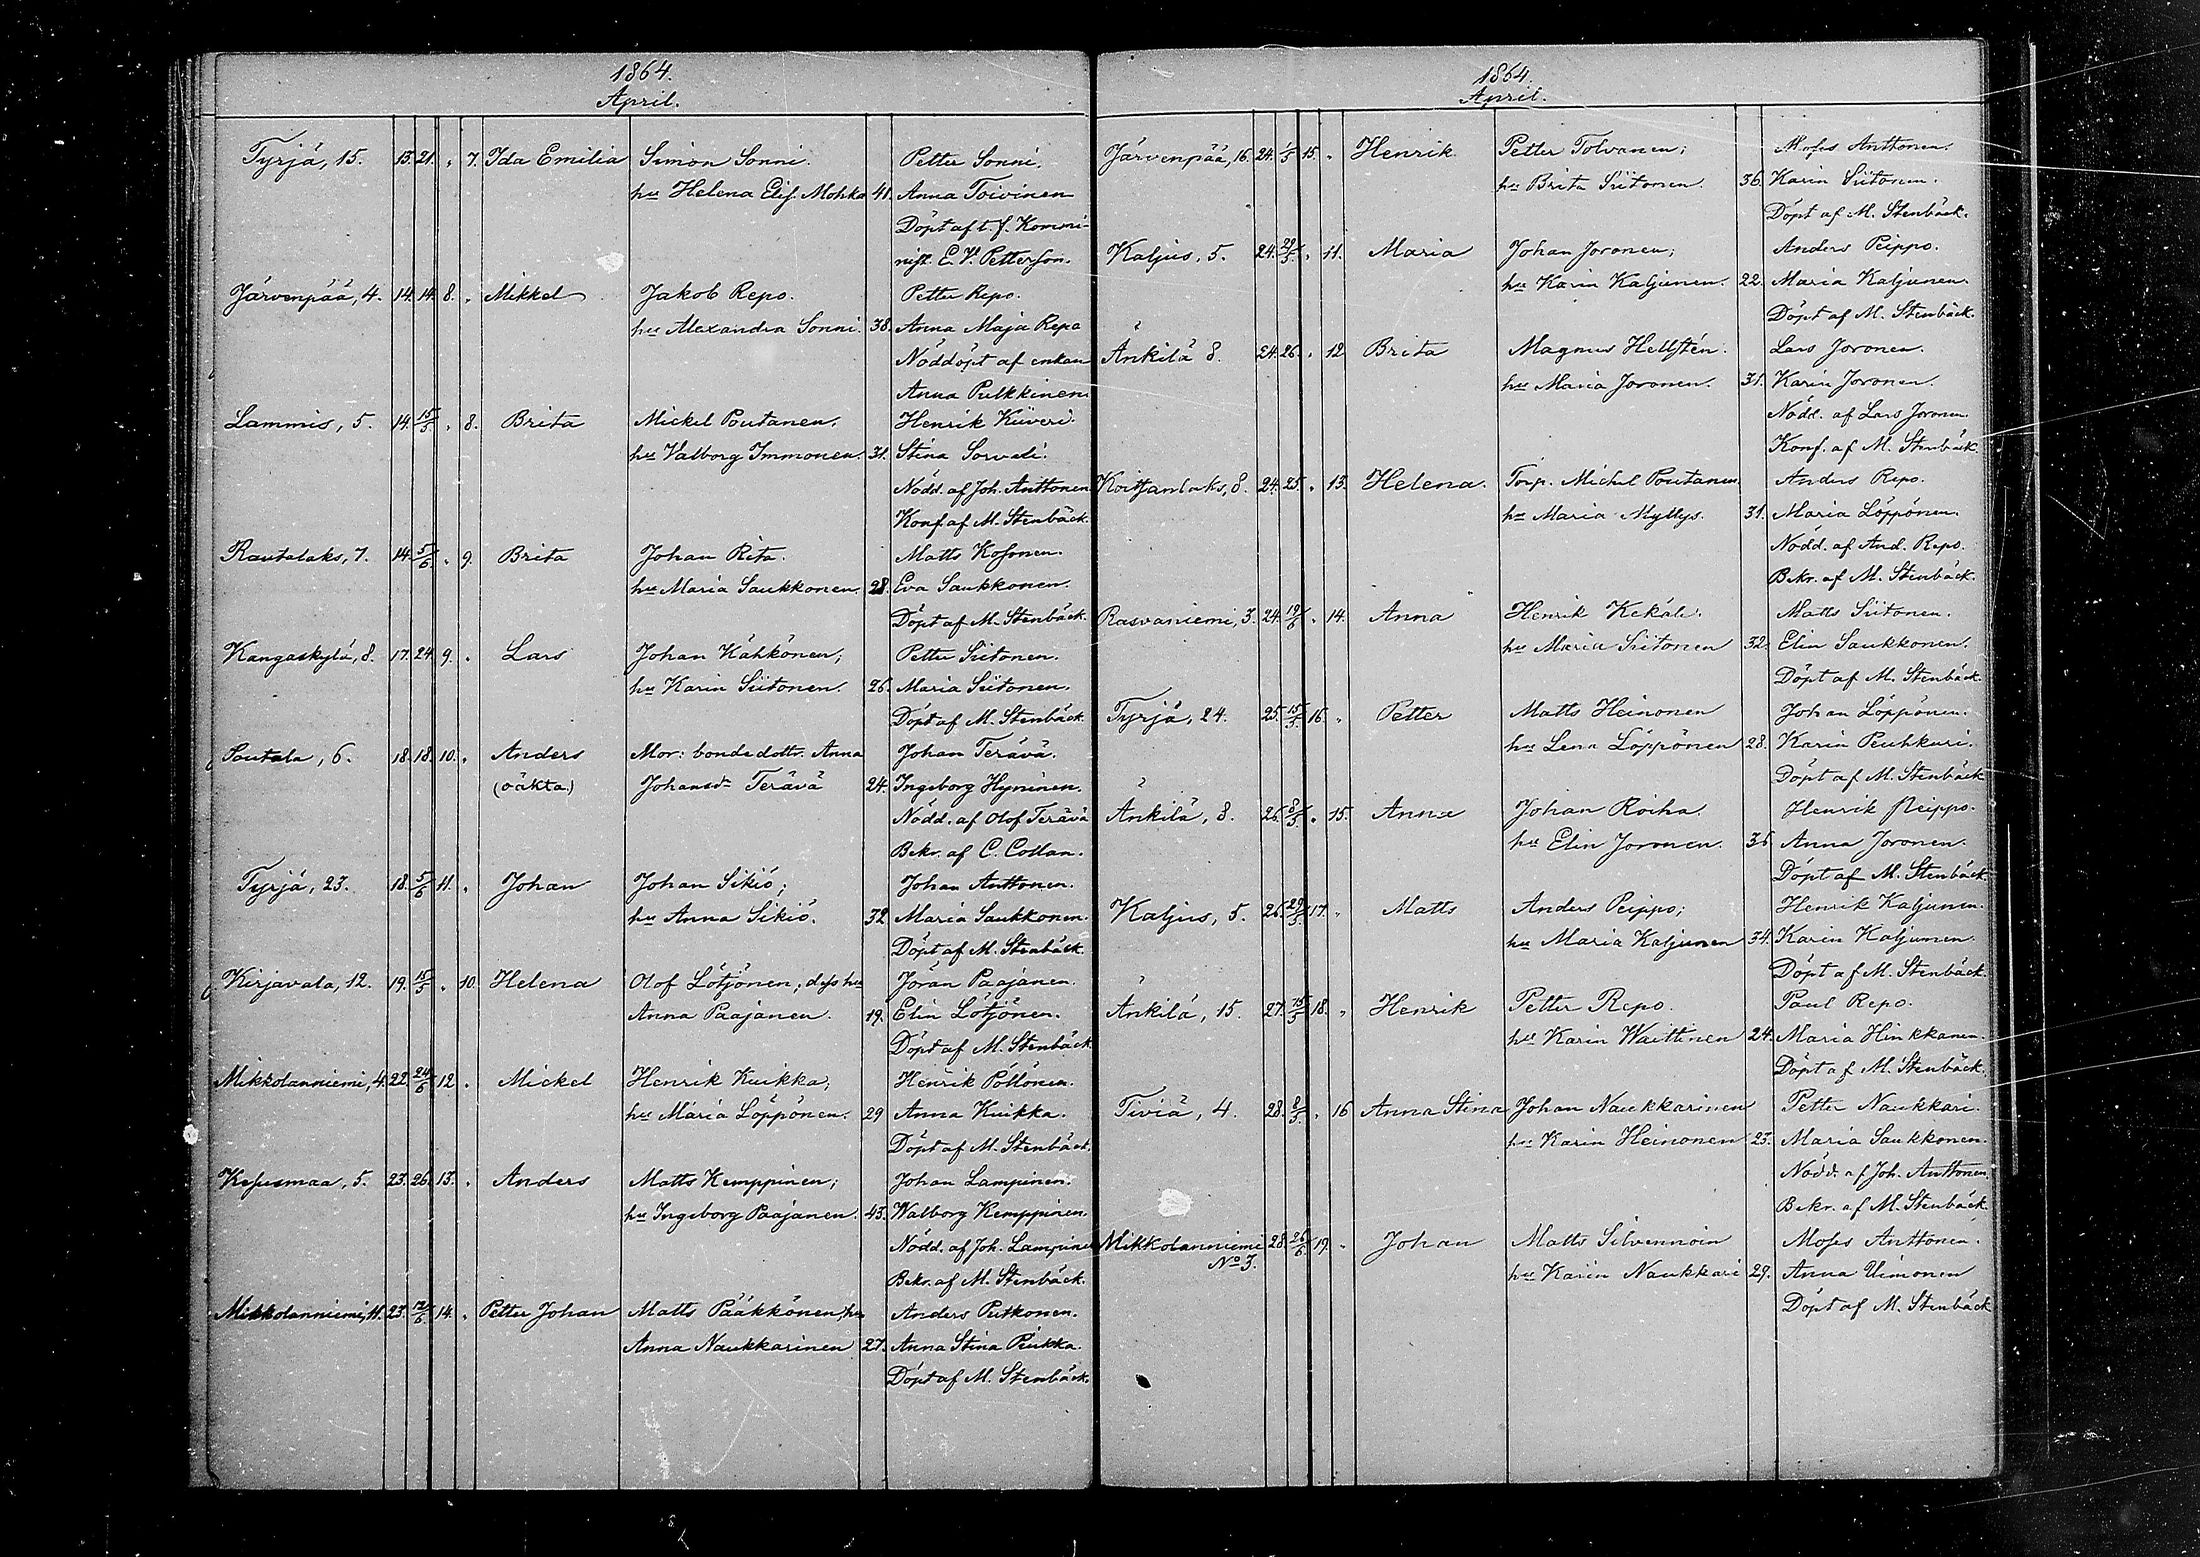 1864.
April.
Tyrjä, 15. 13. 21. „ 7. Ida Emilia Simon Sonni. Petter Sonni.
hu Helena Elis. Mohka 41. Anna Toivinen
Döpt af t. f. Kommi-
nist. E. V. Petterson.
Järvenpää, 4. 14. 14. 8. „ Mikkel Jakob Repo. Petter Repo.
hu Alexandra Sonni. 38. Anna Maja Repo
Nöddöpt af enkan
Anna Pulkkinen.
Lammis, 5. 14. 15/5 „ 8. Brita Mickel Poutanen. Henrik Kiiveri.
hu Valborg Immonen. 31. Stina Sorvali.
Nödd. af Joh. Anttonen
Konf. af M. Stenbäck.
Rautalaks, 7. 14. 5/6 „ 9. Brita Johan Rita. Matts Kosonen.
hu Maria Saukkonen. 28. Eva Saukkonen.
Döpt af M. Stenbäck.
Kangaskylä, 8. 17. 24. 9. „ Lars Johan Kähkönen; Petter Siitonen.
hu Karin Siitonen. 26. Maria Siitonen.
Döpt af M. Stenbäck.
Soutala, 6. 18. 18. 10. „ Anders Mor: bondedottr. Anna Johan Terävä.
(oäkta) Johansdr Terävä 24. Ingeborg Hyninen.
Nödd. af Olof Terävä
Bekr. af C. Collan.
Tyrjä, 23. 18. 5/6 11. „ Johan Johan Sikiö; Johan Anttonen.
hu Anna Sikiö. 32 Maria Saukkonen.
Döpt af M. Stenbäck.
Kirjavala, 12. 19. 15/5 „ 10. Helena Olof Lötjönen; dess hu Jöran Paajanen.
Anna Paajanen. 19. Elin Lötjönen.
Döpt af M. Stenbäck.
Mikkolanniemi, 4. 22. 24/6 12. „ Mickel Henrik Kuikka; Henrik Pöllönen.
hu Maria Löppönen. 29 Anna Kuikka.
Döpt af M. Stenbäck.
Kesusmaa, 5. 23. 26. 13. „ Anders Matts Kemppinen; Johan Lampinen.
hu Ingeborg Paajanen. 43. Walborg Kemppinen.
Nödd. af Joh. Lampinen
Bekr. af M. Stenbäck.
Mikkolanniemi, 11. 23. 14. „ Petter Johan Matts Pääkkönen, hu Anders Putkonen.
Anna Naukkarinen 27. Anna Stina Piukka.
Döpt af M. Stenbäck.
1864.
April.
Järvenpää, 16. 24. 1/5 15. „ Henrik Petter Tolvanen; Moses Anttonen.
hu Brita Siitonen. 36. Karin Siitonen.
Döpt af M. Stenbäck.
Kaljus, 5. 24. 29/5 „ 11. Maria Johan Joronen; Anders Peippo.
hu Karin Kaljunen. 22. Maria Kaljunen.
Döpt af M. Stenbäck.
Änkilä 8. 24. 26. „ 12 Brita Magnus Hellstén. Lars Joronen.
hu Maria Joronen. 31. Karin Joronen.
Nödd. af Lars Joronen.
Konf. af M. Stenbäck.
Koitsanlaks, 8. 24. 25. „ 13. Helena. Torp. Michel Poutanen Anders Repo.
hu Maria Myllys. 31. Maria Löppönen.
Nödd. af And. Repo.
Bekr. af M. Stenbäck.
Rasvaniemi, 3. 24. 19/6 „ 14. Anna Henrik Kekäle. Matts Siitonen.
hu Maria Siitonen 32. Elin Saukkonen.
Döpt af M. Stenbäck.
Tyrjä, 24. 25. 15/5 16. „ Petter Matts Heinonen Johan Löppönen.
hu Lena Löppönen 28. Karin Peuhkuri.
Döpt af M. Stenbäck
Änkilä, 8. 26. 8/5 „ 15. Anna Johan Roiha. Henrik Peippo.
hu Elin Joronen. 36 Anna Joronen.
Döpt af M. Stenbäck.
Kaljus, 5. 26. 29/5 17. „ Matts Anders Peippo; Henrik Kaljunen.
hu Maria Kaljunen 34. Karin Kaljunen.
Döpt af M. Stenbäck.
Änkilä, 15. 27. 15/5 18. „ Henrik Petter Repo. Paul Repo.
hu Karin Waittinen 24. Maria Hinkkanen.
Döpt af M. Stenbäck.
Tiviä, 4. 28. 8/5 „ 16 Anna Stina Johan Naukkarinen Petter Naukkari.
hu Karin Heinonen 23. Maria Saukkonen.
Nödd. af Joh. Anttonen
Bekr. af M. Stenbäck.
Mikkolanniemi 28. 26/6 19. „ Johan Matts Silvennoin Moses Anttonen.
No 3. hu Karin Naukkari 29. Anna Uimonen
Döpt af M. Stenbäck